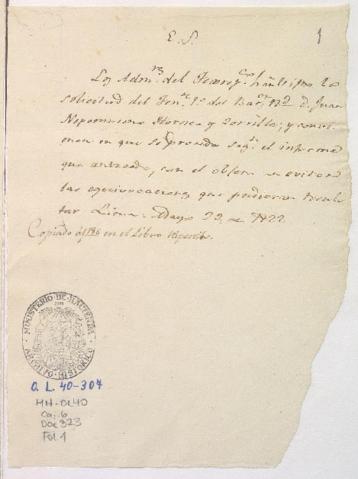 E. S.
1
Los Adm.res del Tesoro
solicitud del Ten.te 1º del Bat.on D. Juan
Nepomuceno y Zorrilla; y
en que se proceda seg.n el informe
que antecede, con el objeto de evitar
las equivocaciones que pudieran resul-
tar Lima y Mayo 22 de 1822
Copiado á f 186 en el Libro
MINISTERIO DE HACIENDA
ARCHIVO HISTORICO
O. L. 40-307
MH-OL40
Ca. 6
Doc 323
Fol 1